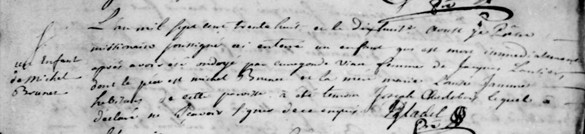 L'an mil sept cent trente huit et le dix huit avust je Prêtre
missionaire soussigné ai enterré un enfant qui est mort immediatement
après avoir été ondoyé par cunegonde viau femme de jacques
dont le pere est michel Brunet et la mere marie
habitans de cette paroisse a été temoin joseph lequel a
declaré ne sçavoir signer de ce enquis
un Enfant
de Michel
Brunet